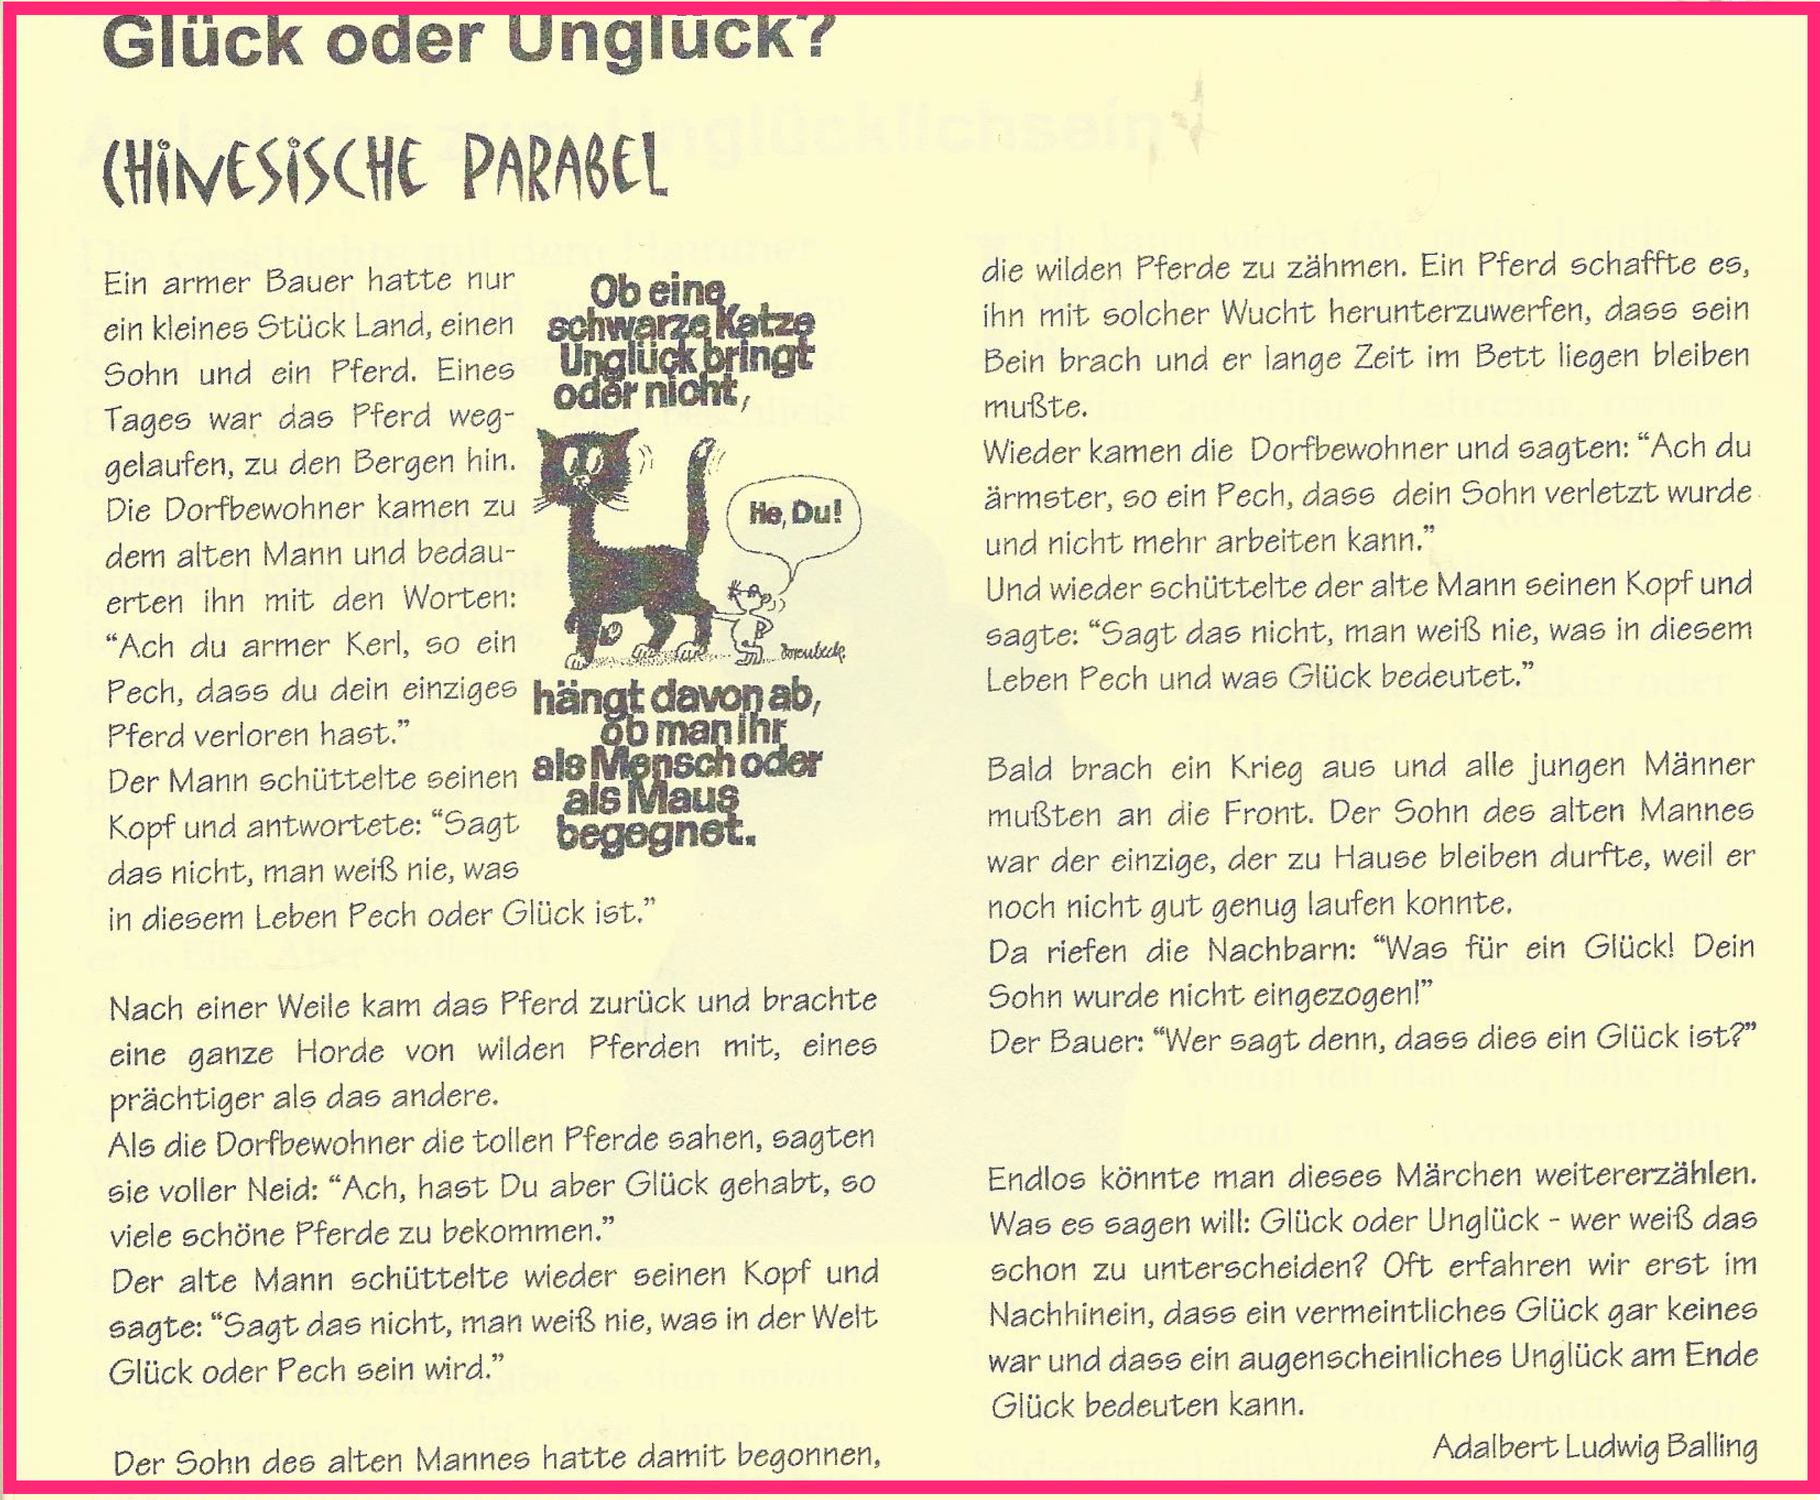 Glück oder Unglück?
CHINESISCHE PARABEL
Ein armer Bauer hatte nur
ein kleines Stück Land, einen
Sohn und ein Pferd. Eines
Tages war das Pferd weg-
gelaufen, zu den Bergen hin.
Die Dorfbewohner kamen zu
dem alten Mann und bedau-
erten ihn mit den Worten:
“Ach du armer Kerl, so ein
Pech, dass du dein einziges
Pferd verloren hast.”
Der Mann schüttelte seinen
Kopf und antwortete: “Sagt
das nicht, man weiß nie, was
in diesem Leben Pech oder Glück ist.”
Ob eine
schwarze Katze
Unglück bringt
oder nicht,
He, Du!
hängt davon ab,
ob man ihr
als Mensch oder
als Maus
begegnet.
Nach einer Weile kam das Pferd zurück und brachte
eine ganze Horde von wilden Pferden mit, eines
prächtiger als das andere.
Als die Dorfbewohner die tollen Pferde sahen, sagten
sie voller Neid: “Ach, hast Du aber Glück gehabt, so
viele schöne Pferde zu bekommen.”
Der alte Mann schüttelte wieder seinen Kopf und
sagte: “Sagt das nicht, man weiß nie, was in der Welt
Glück oder Pech sein wird.”
Der Sohn des alten Mannes hatte damit begonnen,
die wilden Pferde zu zähmen. Ein Pferd schaffte es,
ihn mit solcher Wucht herunterzuwerfen, dass sein
Bein brach und er lange Zeit im Bett liegen bleiben
mußte.
Wieder kamen die Dorfbewohner und sagten: “Ach du
ärmster, so ein Pech, dass dein Sohn verletzt wurde
und nicht mehr arbeiten kann.”
Und wieder schüttelte der alte Mann seinen Kopf und
sagte: “Sagt das nicht, man weiß nie, was in diesem
Leben Pech und was Glück bedeutet.”
Bald brach ein Krieg aus und alle jungen Männer
mußten an die Front. Der Sohn des alten Mannes
war der einzige, der zu Hause bleiben durfte, weil er
noch nicht gut genug laufen konnte.
Da riefen die Nachbarn: “Was für ein Glück! Dein
Sohn wurde nicht eingezogen!”
Der Bauer: “Wer sagt denn, dass dies ein Glück ist?”
Endlos könnte man dieses Märchen weitererzählen.
Was es sagen will: Glück oder Unglück - wer weiß das
schon zu unterscheiden? Oft erfahren wir erst im
Nachhinein, dass ein vermeintliches Glück gar keines
war und dass ein augenscheinliches Unglück am Ende
Glück bedeuten kann.
Adalbert Ludwig Balling